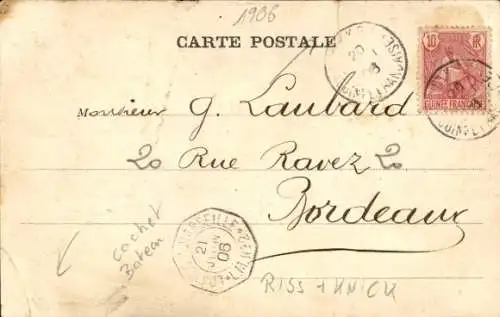 1906
CARTE POSTALE
10
GUINÉE FRANÇAISE
Monsieur G. Laubard
20 Rue Ravez 20
Bordeaux
cachet
Bateau
21
JUIN
06
RISS + KNICK